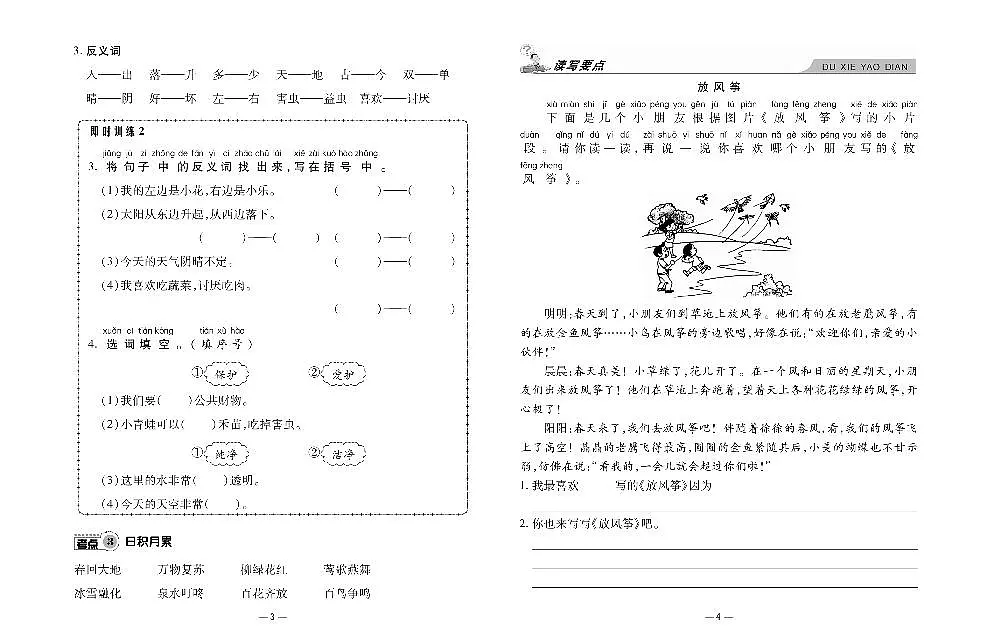 3. 反义词
入——出 落——升 多——少 天——地 古——今 双——单
晴——阴 好——坏 左——右 害虫——益虫 喜欢——讨厌
即时训练2
jiāng jù zi zhōng de fǎn yì cí zhǎo chū lái xiě zài kuò hào zhōng
3. 将句子中的反义词找出来,写在括号中。
(1)我的左边是小花,右边是小乐。 ( )——( )
(2)太阳从东边升起,从西边落下。
( )——( ) ( )——( )
(3)今天的天气阴晴不定。 ( )——( )
(4)我喜欢吃蔬菜,讨厌吃肉。
( )——( )
xuǎn cí tián kòng tián xù hào
4. 选词填空。(填序号)
①保护 ②爱护
(1)我们要( )公共财物。
(2)小青蛙可以( )禾苗,吃掉害虫。
①纯净 ②洁净
(3)这里的水非常( )透明。
(4)今天的天空非常( )。
要点 3 日积月累
春回大地 万物复苏 柳绿花红 莺歌燕舞
冰雪融化 泉水叮咚 百花齐放 百鸟争鸣
— 3 —
读写要点 DU XIE YAO DIAN
放风筝
xià miàn shì jǐ gè xiǎo péng yǒu gēn jù tú piàn fàng fēng zheng xiě de xiǎo piàn
下面是几个小朋友根据图片《放风筝》写的小片
duàn qǐng nǐ dú yì dú zài shuō yì shuō nǐ xǐ huan nǎ gè xiǎo péng yǒu xiě de fàng
段。请你读一读,再说一说你喜欢哪个小朋友写的《放
fēng zheng
风筝》。
明明:春天到了,小朋友们到草地上放风筝。他们有的在放老鹰风筝,有
的在放金鱼风筝……小鸟在风筝的旁边歌唱,好像在说:“欢迎你们,亲爱的小
伙伴!”
晨晨:春天真美!小草绿了,花儿开了。在一个风和日丽的星期天,小朋
友们出来放风筝了!他们在草地上奔跑着,望着天上各种花花绿绿的风筝,开
心极了!
阳阳:春天来了,我们去放风筝吧!伴随着徐徐的春风,看,我们的风筝飞
上了高空!晶晶的老鹰飞得最高,圆圆的金鱼紧随其后,小美的蝴蝶也不甘示
弱,仿佛在说:“看我的,一会儿就会超过你们啦!”
1. 我最喜欢 写的《放风筝》因为
2. 你也来写写《放风筝》吧。
— 4 —